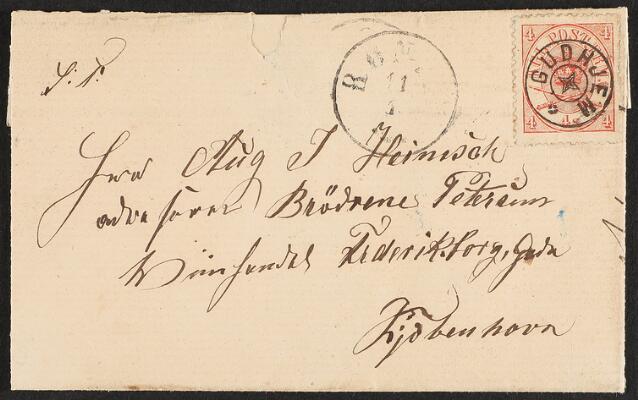 S. T.
RØN
11
1
4 POST 4
GUDHJEM
4 4
Herr Aug J Heinisch
adresserer Brödrene Petersen
Viinhandel Frederiksborg, Gade
Kjøbenhavn